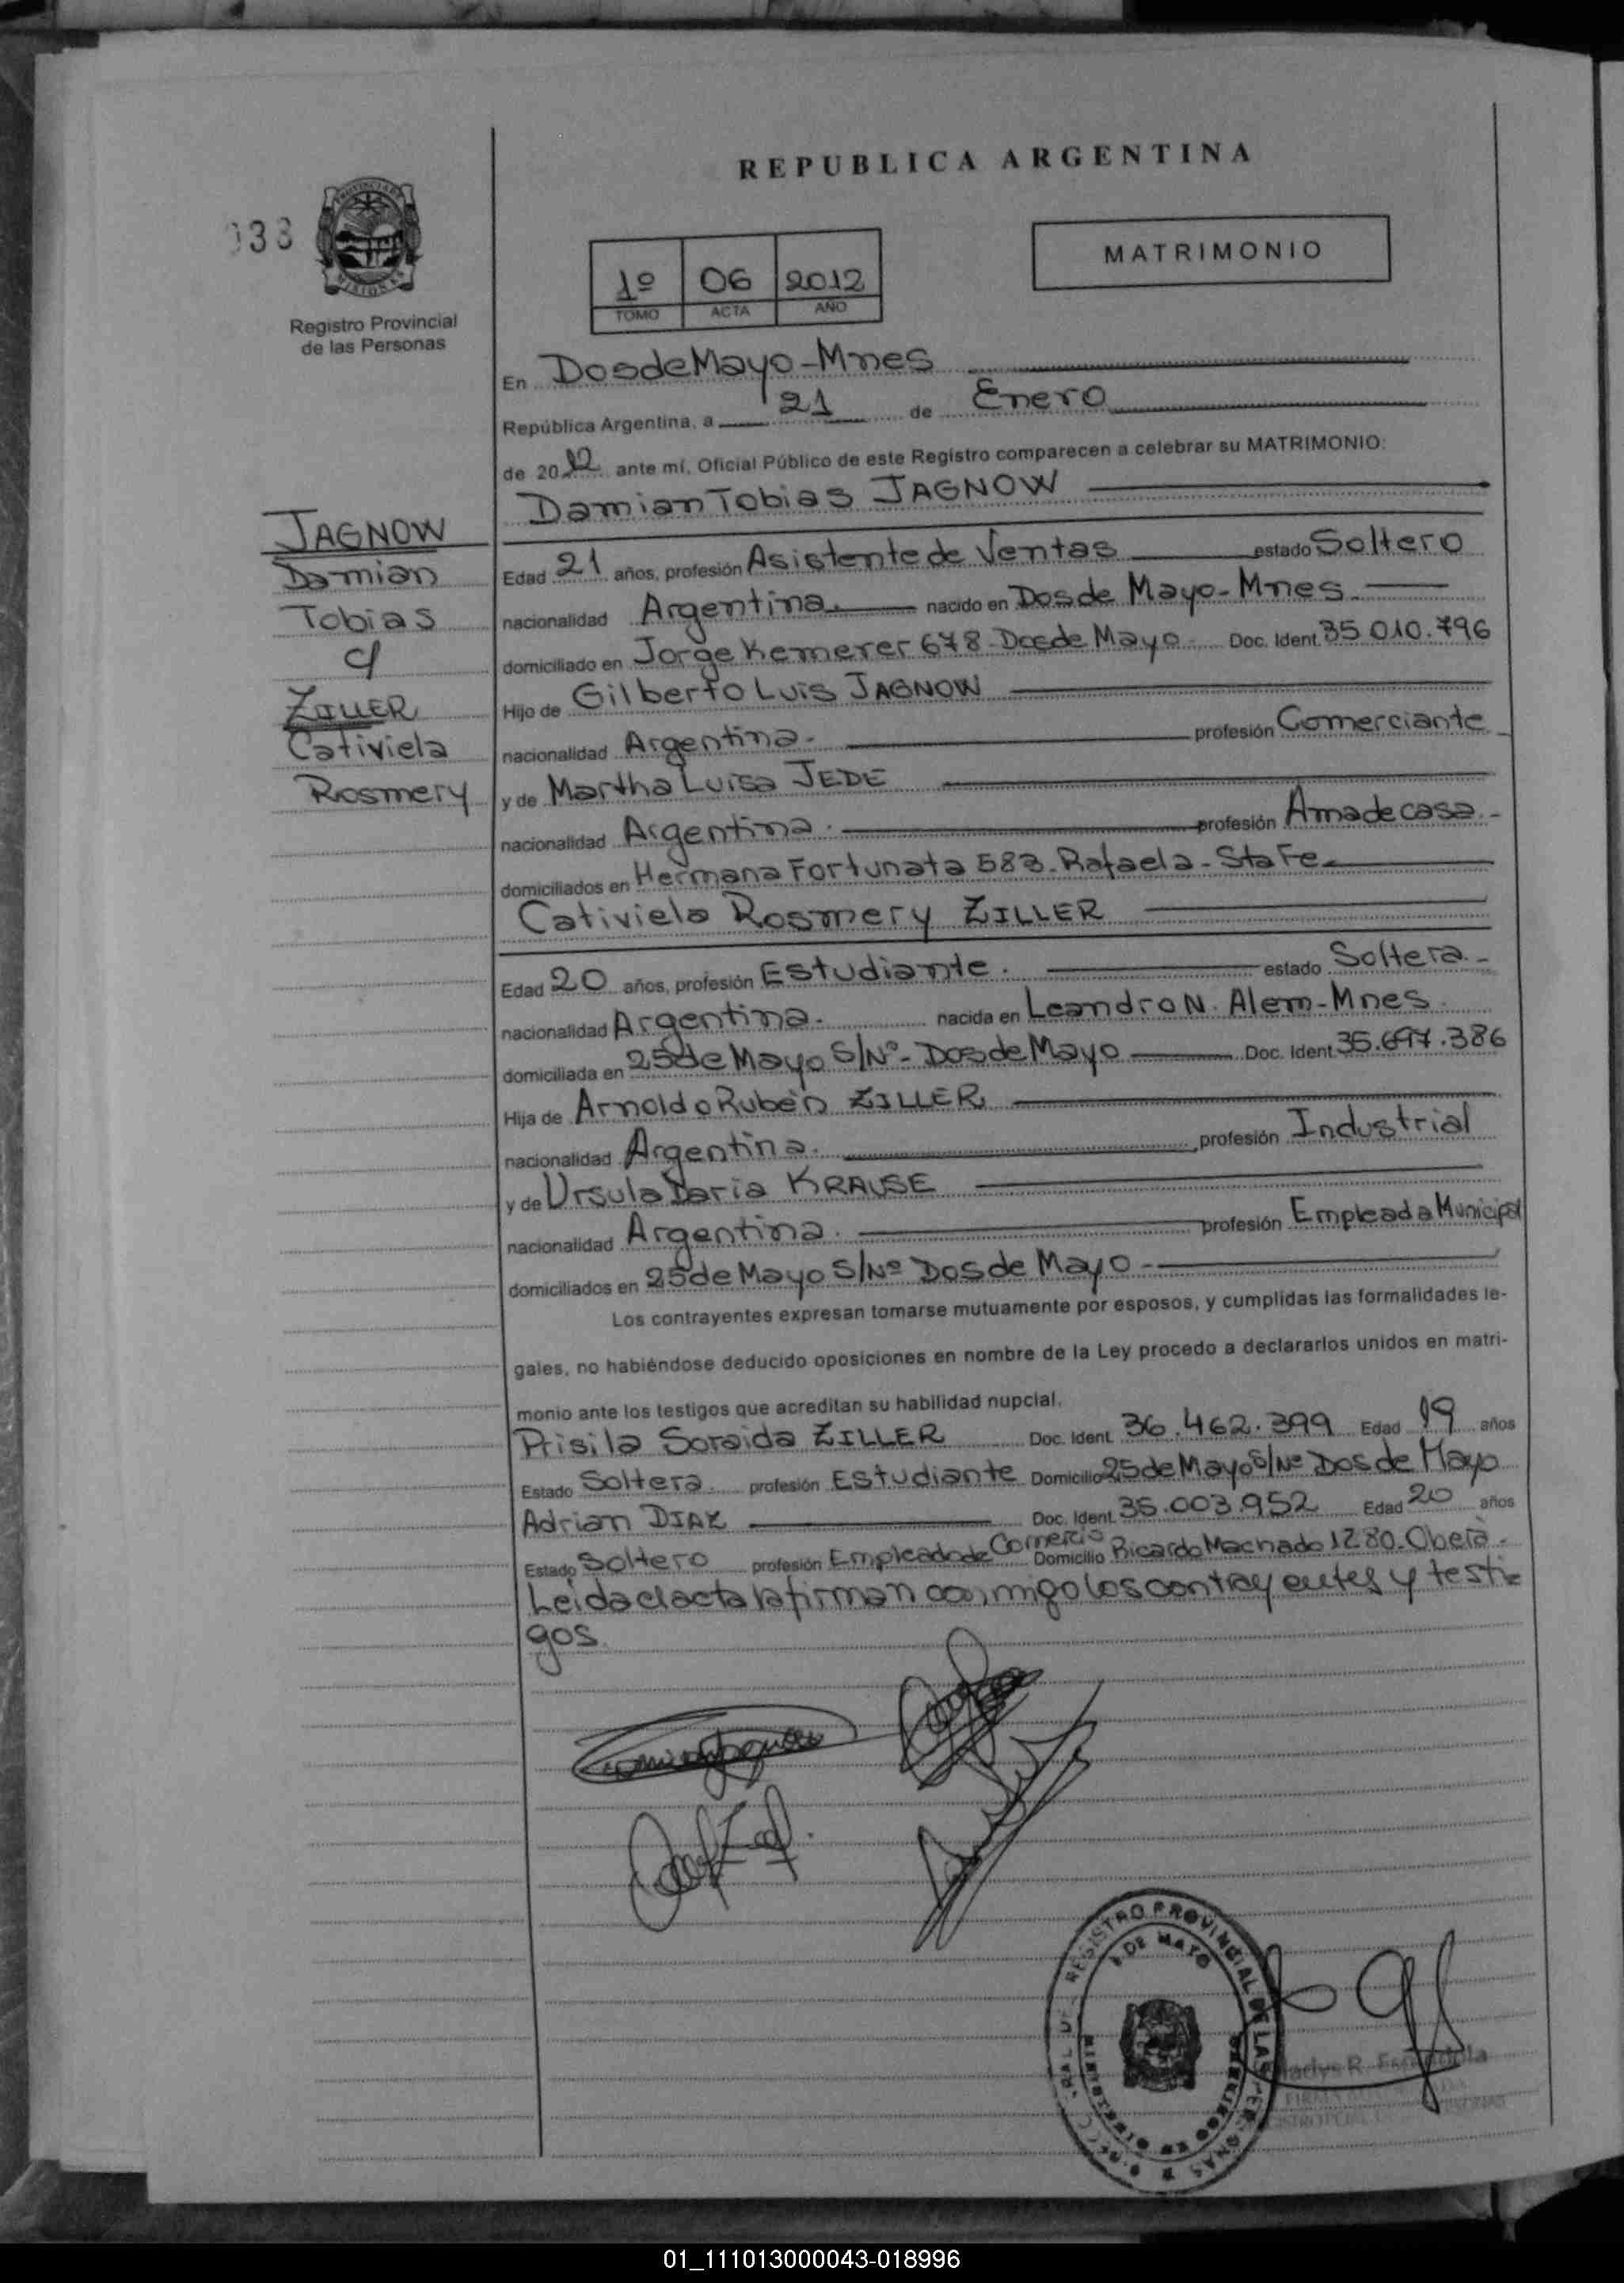 REPUBLICA ARGENTINA
038
MATRIMONIO
1º 06 2012
TOMO ACTA AÑO
Registro Provincial
de las Personas
En DosdeMayo-Mnes
República Argentina, a 21 de Enero
de 2012 ante mí, Oficial Público de este Registro comparecen a celebrar su MATRIMONIO:
Damian Tobias JAGNOW
JAGNOW
Damian
Tobias
c/
ZILLER
Cativiela
Rosmery
Edad 21 años, profesión Asistente de Ventas estado Soltero
nacionalidad Argentina. nacido en Dos de Mayo-Mnes
domiciliado en Jorge Kemerer 678-Dosde Mayo Doc. Ident. 35.010.796
Hijo de Gilberto Luis JAGNOW
nacionalidad Argentina. profesión Comerciante
y de Martha Luisa JEDE
nacionalidad Argentina. profesión Amadecasa.-
domiciliados en Hermana Fortunata 583-Rafaela-Sta Fe
Cativiela Rosmery ZILLER
Edad 20 años, profesión Estudiante. estado Soltera.-
nacionalidad Argentina. nacida en Leandro N. Alem-Mnes
domiciliada en 25de Mayo S/Nº-Dos de Mayo Doc. Ident. 35.697.386
Hija de Arnoldo Rubén ZILLER
nacionalidad Argentina. profesión Industrial
y de Ursula Daria KRAUSE
nacionalidad Argentina. profesión Empleada Municipal
domiciliados en 25de Mayo S/Nº Dos de Mayo-
Los contrayentes expresan tomarse mutuamente por esposos, y cumplidas las formalidades le-
gales, no habiéndose deducido oposiciones en nombre de la Ley procedo a declararlos unidos en matri-
monio ante los testigos que acreditan su habilidad nupcial.
Prisila Soraida ZILLER Doc. Ident. 36.462.399 Edad 19 años
Estado Soltera profesión Estudiante Domicilio 25de Mayo S/Nº Dos de Mayo
Adrian DIAZ Doc. Ident. 35.003.952 Edad 20 años
Estado Soltero profesión Empleadode Comercio Domicilio Ricardo Machado 1280-Oberá-
Leida el acta la firman conmigo los contrayentes y testi-
gos.
REGISTRO PROVINCIAL DE LAS PERSONAS
DE MAYO
01_111013000043-018996